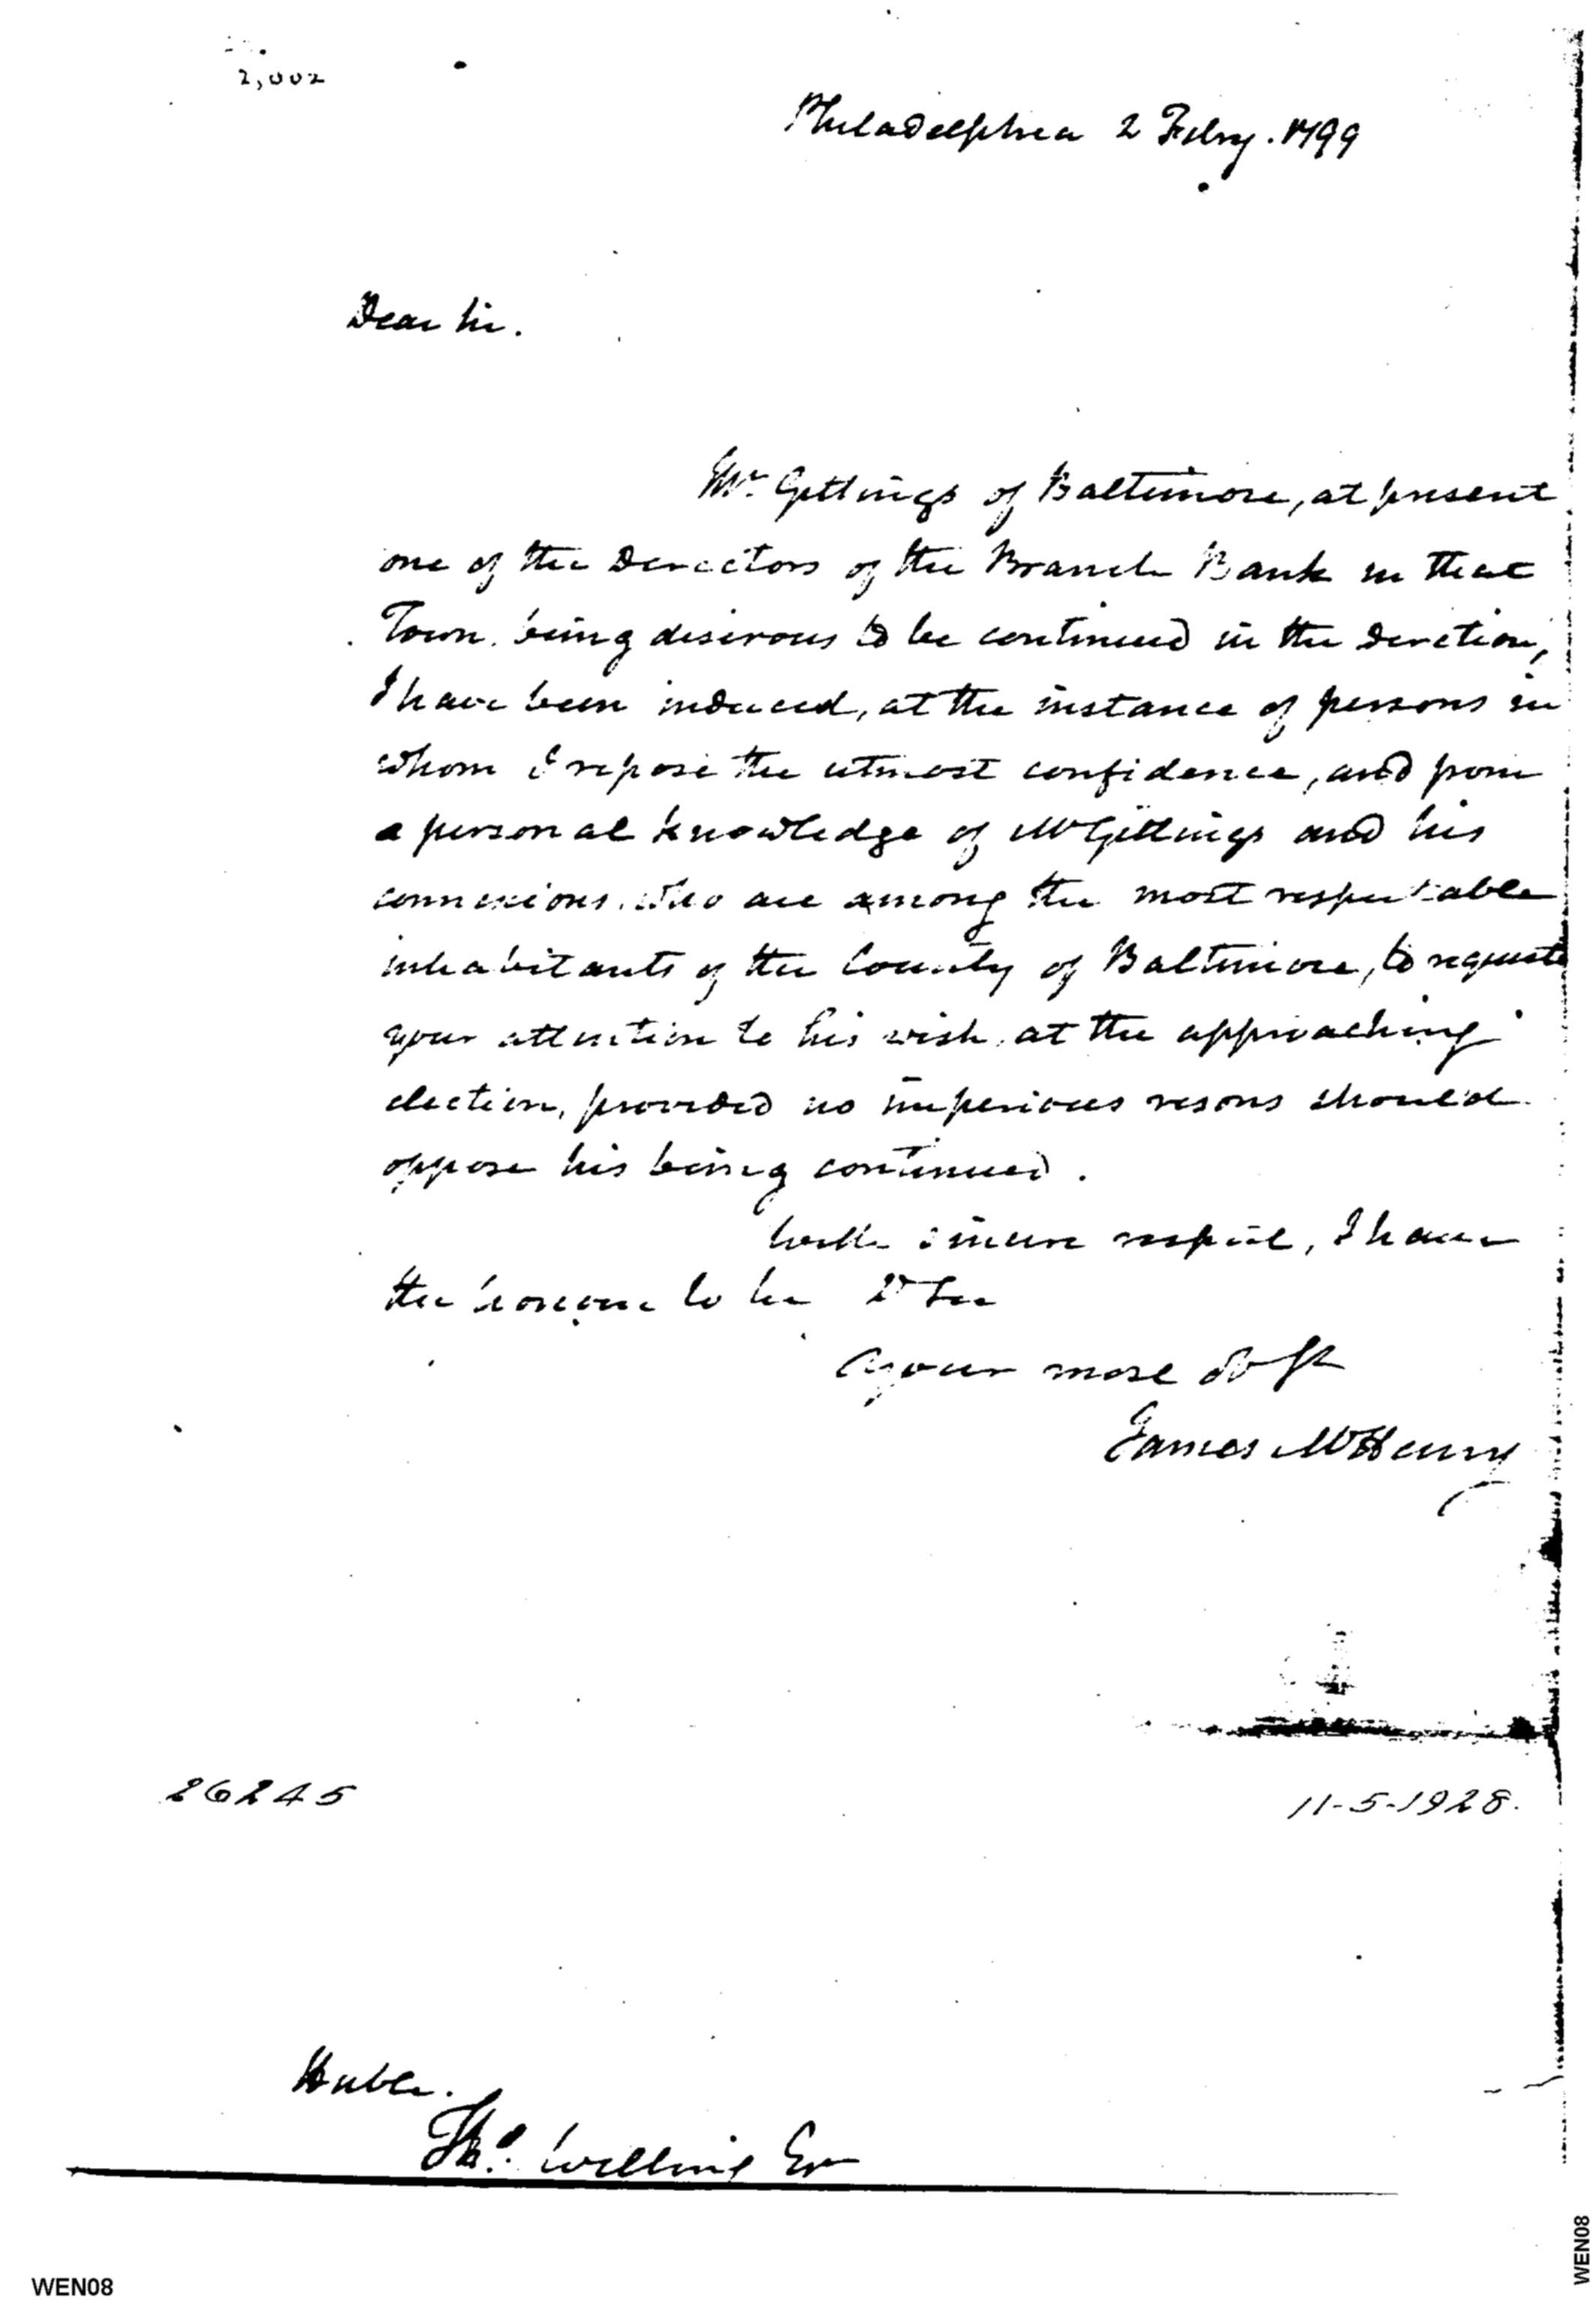 2,002
Philadelphia 2 Feby. 1799
Dear Sir.
Mr. Gittings of Baltimore, at present
one of the Derectors of the Branch Bank in that
Town. being desirous to be continued in the Derction,
I have been induced, at the instance of persons in
whom I repose the utmost confidence, and from
a personal knowledge of Mr Gittings and his
connexions. who are among the most respectable
inhabitants of the County of Baltimore, to request
your attention to his wish. at the approaching
election, provided no imperious resons should
oppose his being continued.
With sincere respect, I have
the honour to be Dr Sir
Your most obt
James McHenry
26245
11-5-1928.
Honble.
Thos. Willing Esr
WEN08
WEN08